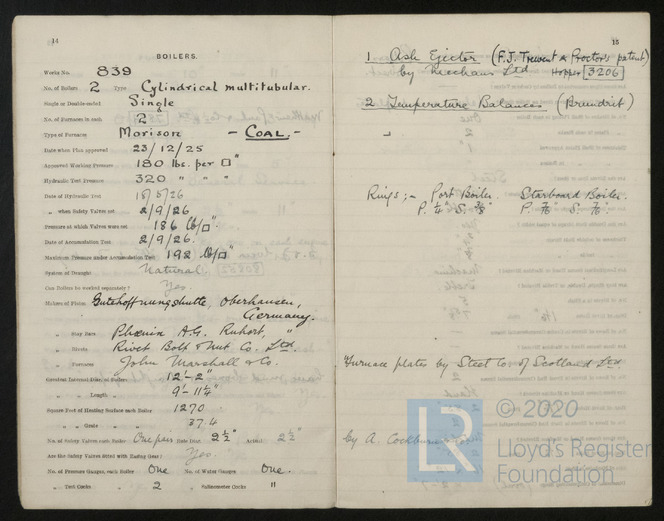 14
BOILERS.
Works No. 839
No. of Boilers 2 Type Cylindrical multitubular.
Single or Double-ended Single
No. of Furnaces in each 2
Type of Furnaces Morison - COAL. -
Date when Plan approved 23/12/25
Approved Working Pressure 180 lbs. per □"
Hydraulic Test Pressure 320 " " "
Date of Hydraulic Test 18/8/26
" when Safety Valves set 2/9/26
Pressure at which Valves were set 186 lb/□"
Date of Accumulation Test 2/9/26.
Maximum Pressure under Accumulation Test 192 lb/□"
System of Draught Natural
Can Boilers be worked separately? Yes.
Makers of Plates Gutehoffnungshutte, Oberhausen,
Germany.
" Stay Bars Phoenix A.G. Ruhort, "
" Rivets Rivet Bolt & Nut Co. Ltd.
" Furnaces John Marshall & Co.
Greatest Internal Diam. of Boilers 12'-2"
" " Length " 9'-11¼"
Square Feet of Heating Surface each Boiler 1270
" " Grate " " 37.4
No. of Safety Valves each Boiler One pair Rule Diam. 2½" Actual 2½"
Are the Safety Valves fitted with Easing Gear? Yes.
No. of Pressure Gauges, each Boiler One No. of Water Gauges One.
" Test Cocks " 2 " Salinometer Cocks "
15
1 Ash Ejector (F.J. Trewent & Proctor's patent)
by Mechans Ltd Hopper 3206
2 Temperature Balances (Brandrit)
"
Rings :- Port Boiler. Starboard Boiler.
Furnace plates by Steel Co. of Scotland Ltd.
by A. Cockburn
© 2020
LR
Lloyd's Register
Foundation